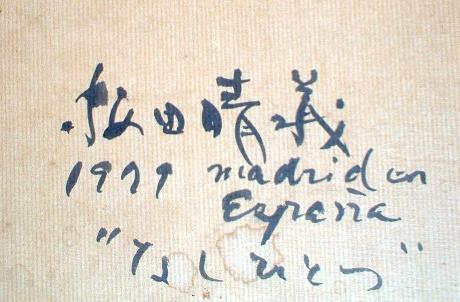 田晴義
1979 madrid en
España
"なしひとつ"